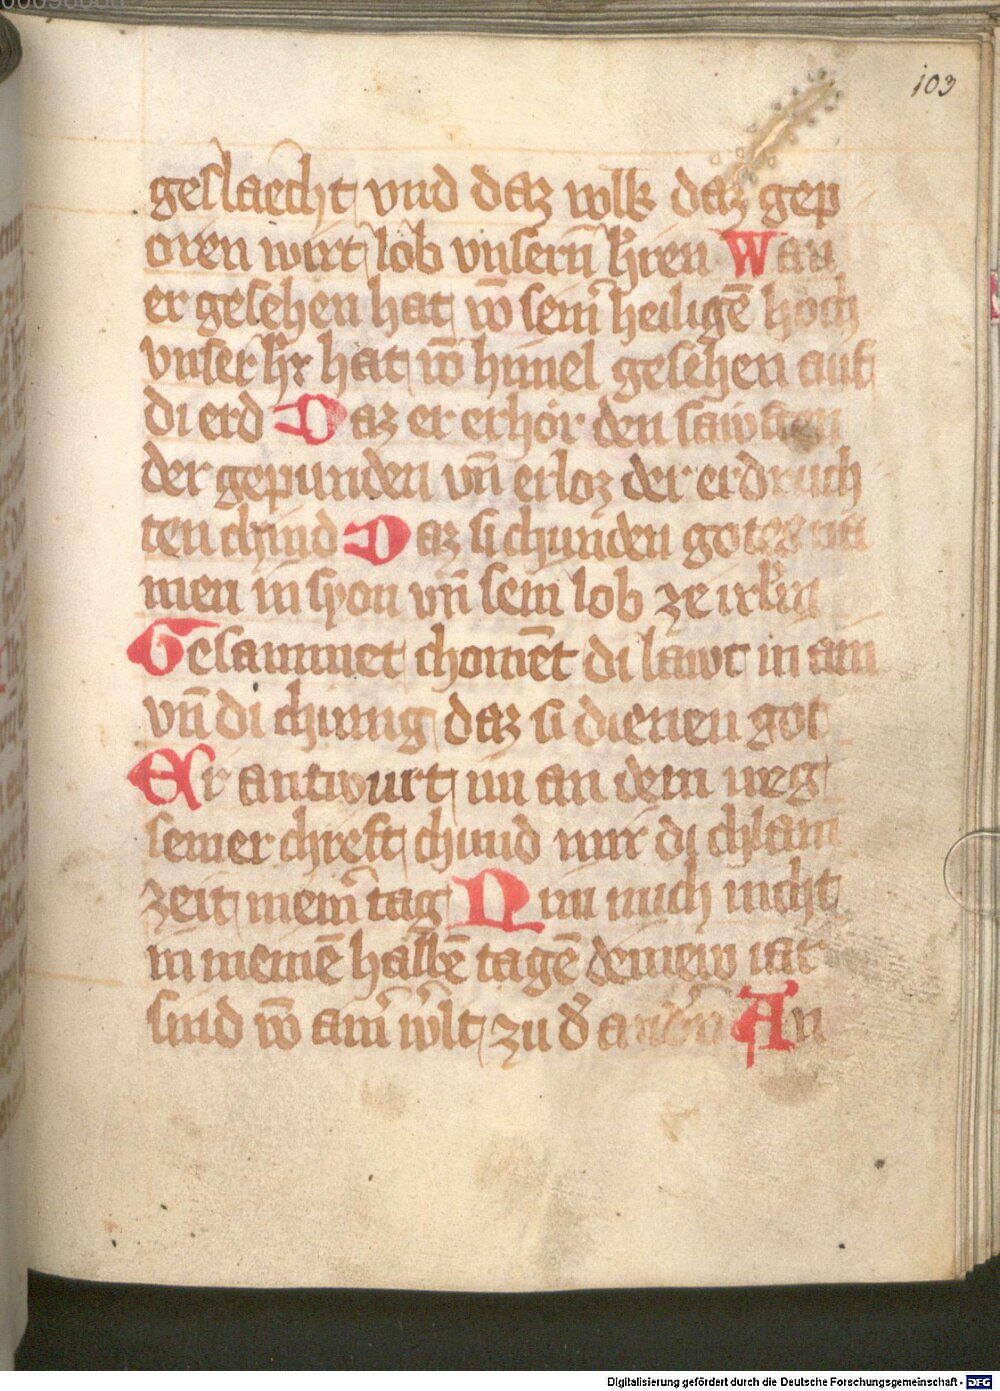 103
geslaecht vnd daz volk daz gep
oren wirt lob vnsern̄ hʼren Wan
er gesehen hat vō seinʼ heiligē hoch
vnser hʼr hat vō himel gesehen auf
di erd Daz er erhör den sawften
der gepunden vn̄ erloz der erdruch
ten chind Daz si chunden gotes na
men in syon vn̄ sein lob ze irlʼm
Gesammet chomēt di lawt in ain
vn̄ di chunig daz si dienen got
Er antwurt im an dem weg
seiner chreft chund mir di chlain
zeit meinʼ tag Nim mich nicht
in meinē halbē tagē deinew iar
sind vō ainʼ wʼlt zu dʼ andʼn An
Digitalisierung gefördert durch die Deutsche Forschungsgemeinschaft - DFG